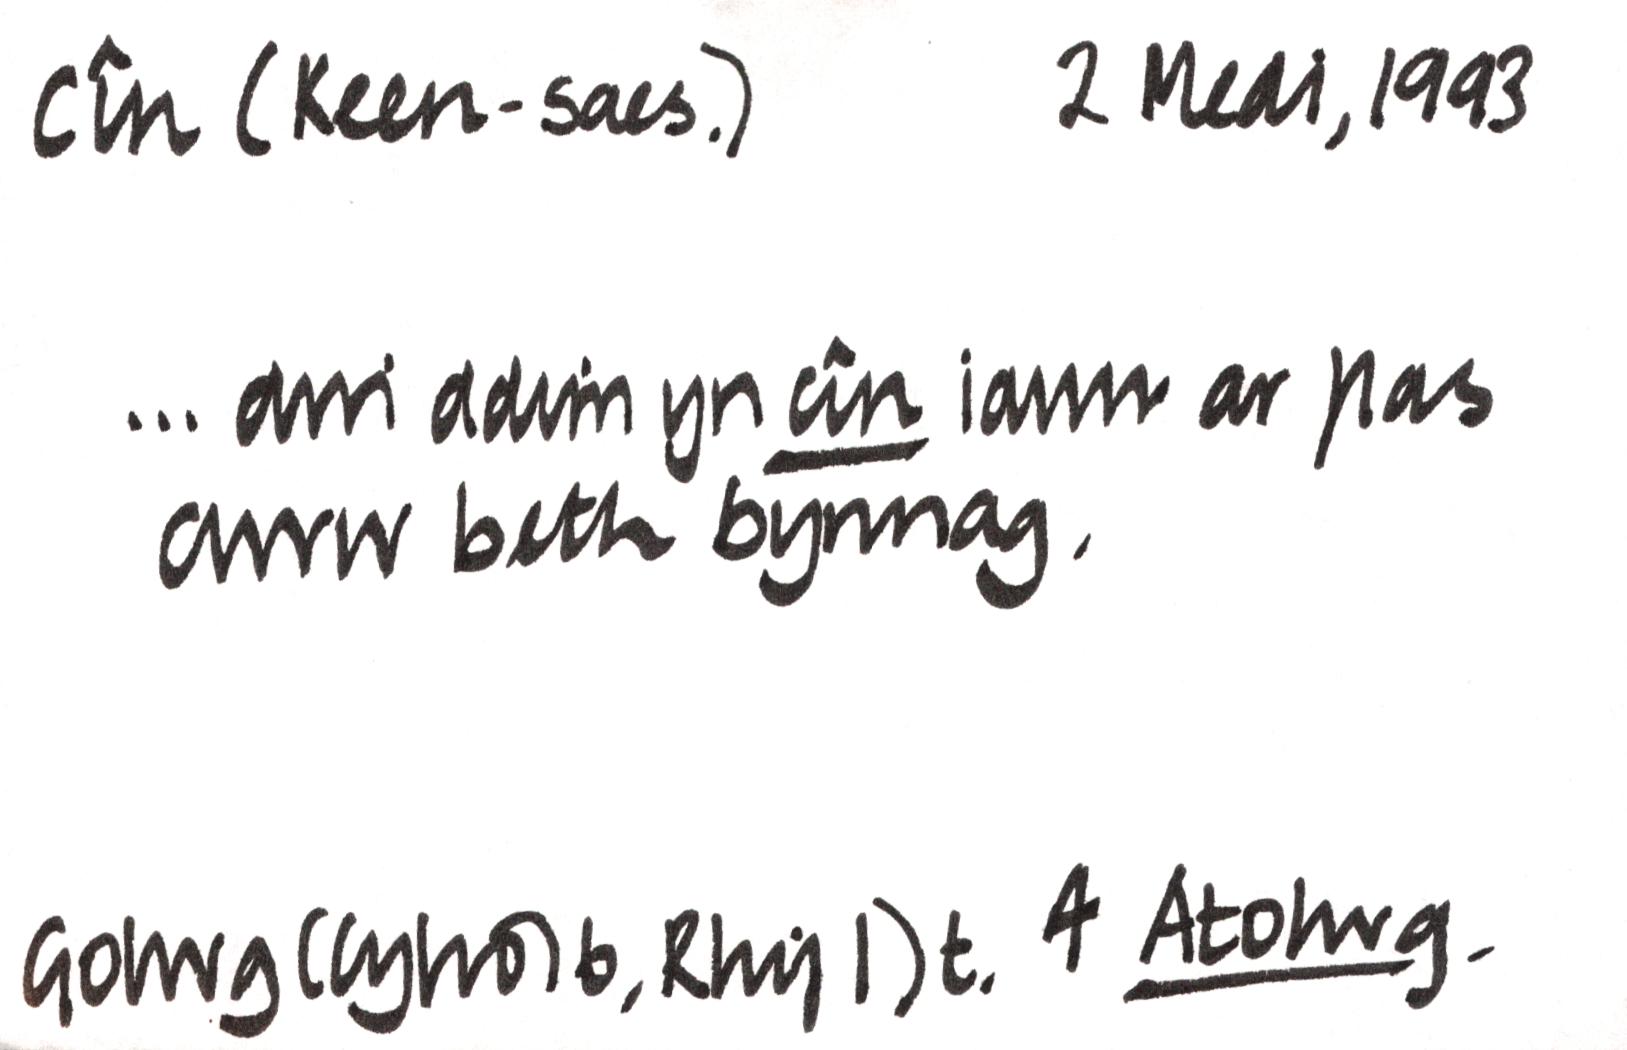 cîn (Keen-saes.) 2 Medi, 1993
... dwi ddim yn cîn iawn ar flas
cwrw beth bynnag.
Golwg (Cyfrol 6, Rhif 1) t. 4 Atolwg.